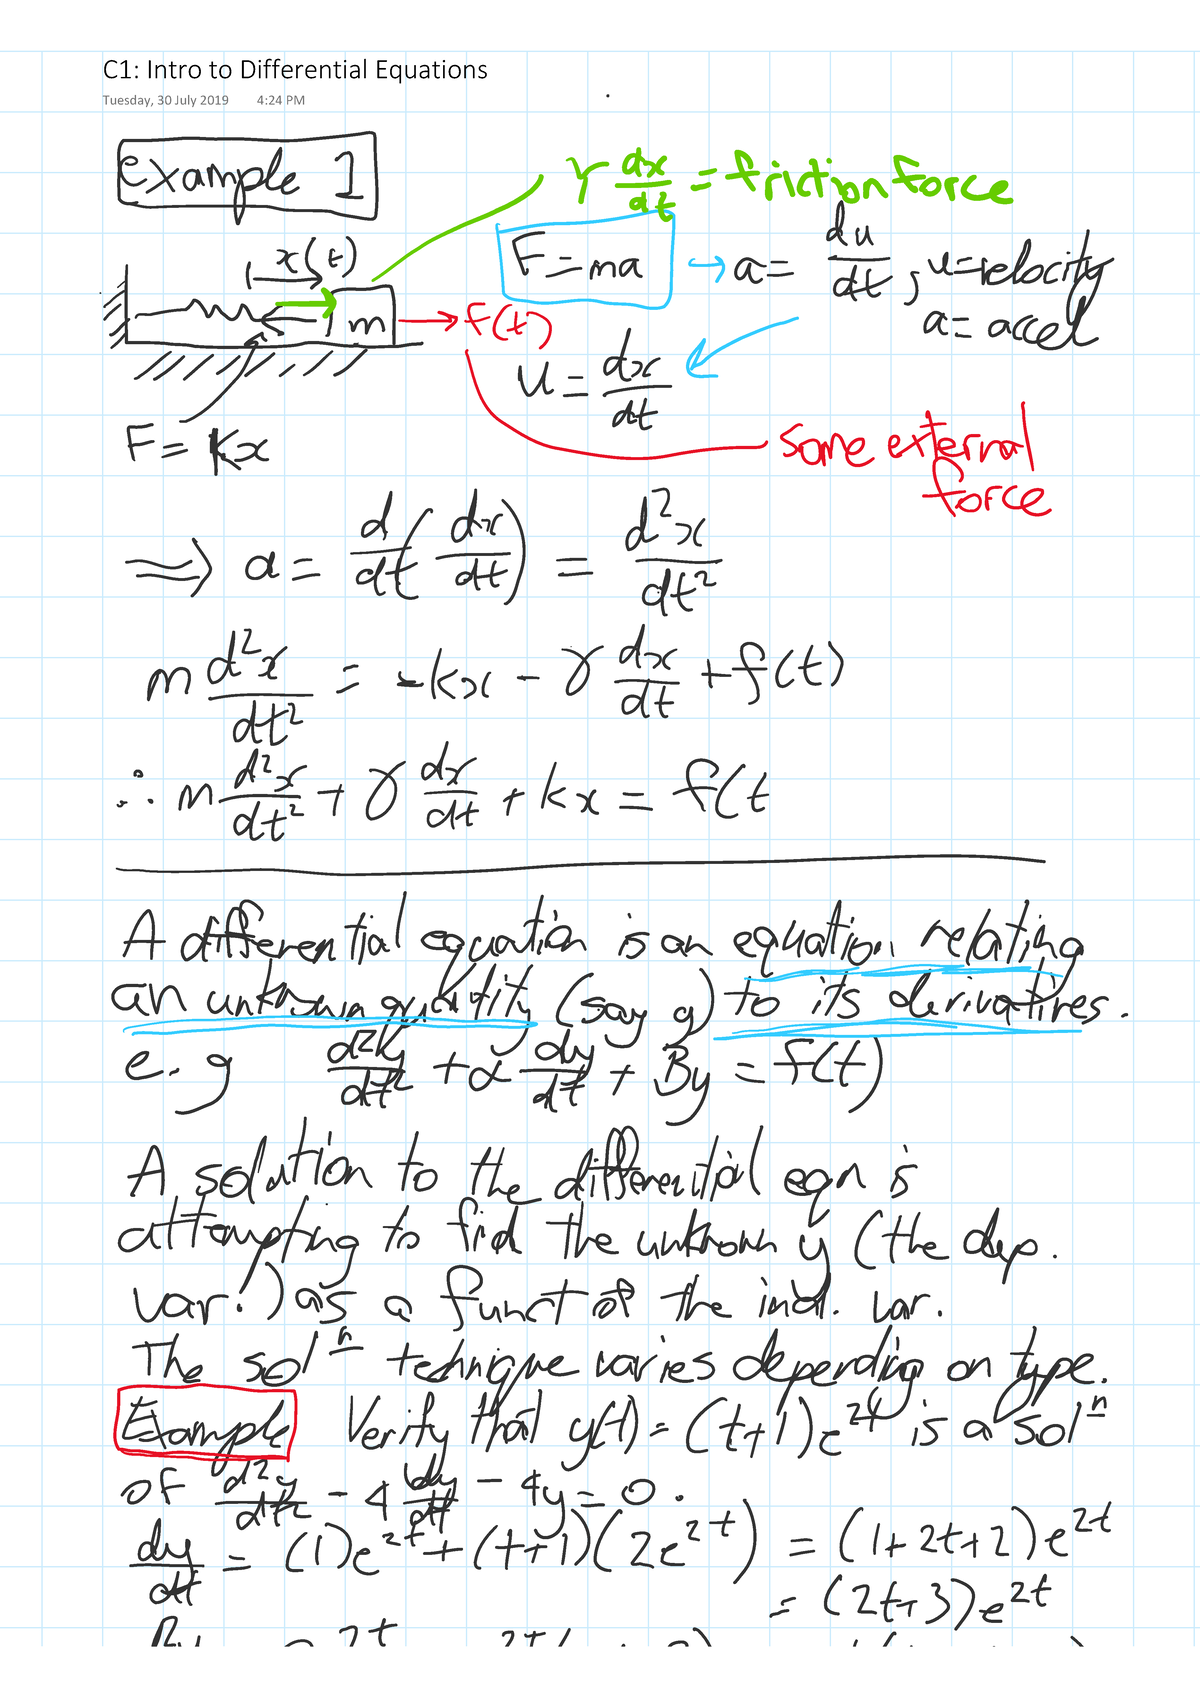 C1: Intro to Differential Equations
Tuesday, 30 July 2019 4:24 PM
example 1
γ dx/dt = friction force
x(t)
F = ma → a = du/dt, u = velocity
a = accel
m → f(t)
u = dx/dt
F = kx
some external
force
⇒ a = d/dt (dx/dt) = d²x/dt²
m d²x/dt² = -kx - γ dx/dt + f(t)
∴ m d²x/dt² + γ dx/dt + kx = f(t
A differential equation is an equation relating
an unknown quantity (say y) to its derivatives.
e.g d²y/dt² + α dy/dt + By = f(t)
A solution to the differential eqn is
attempting to find the unknown y (the dep.
var.) as a funct of the ind. var.
The solⁿ technique varies depending on type.
Example Verify that y(t) = (t+1)e^2t is a solⁿ
of d²y/dt² - 4 dy/dt - 4y = 0.
dy/dt = (1)e^2t + (t+1)(2e^2t) = (1+2t+2)e^2t
= (2t+3)e^2t